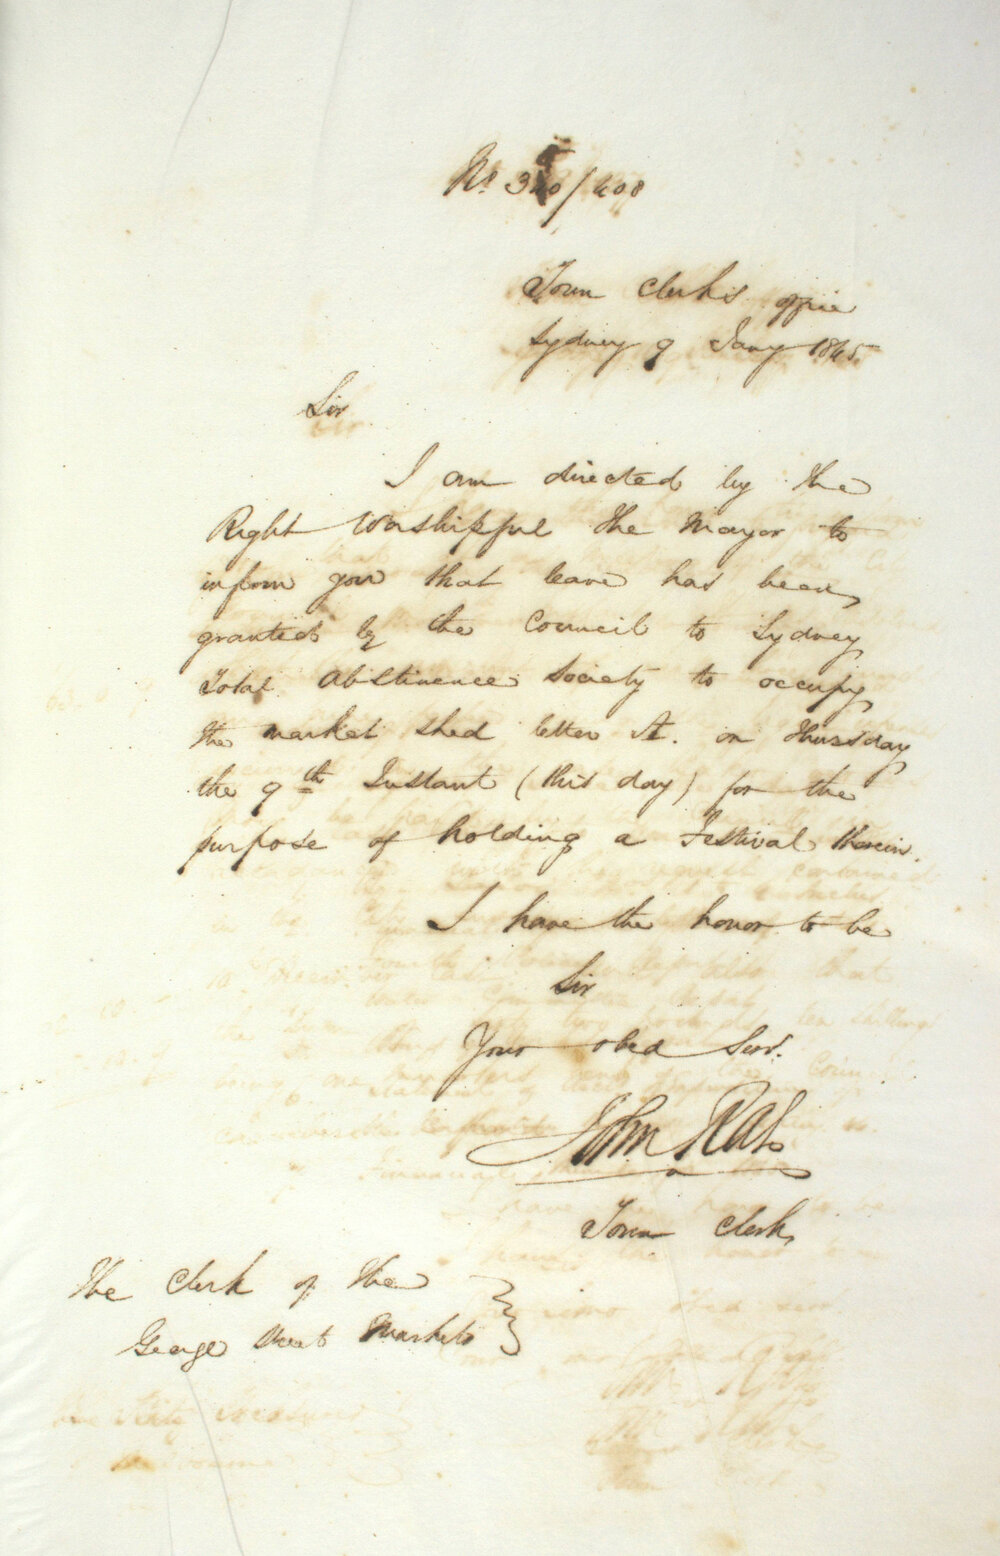 No 340/408
Town Clerk's office
Sydney 9 Jany 1845.
Sir
I am directed by the
Right Worshipful the Mayor to
inform you that leave has been
granted by the Council to Sydney
Total Abstinence Society to occupy
the market shed letter A. on Thursday
the 9th Instant (this day) for the
purpose of holding a Festival therein.
I have the honor to be
Sir
Your obed Servt.
John Rae
Town Clerk
The Clerk of the
George Street Markets